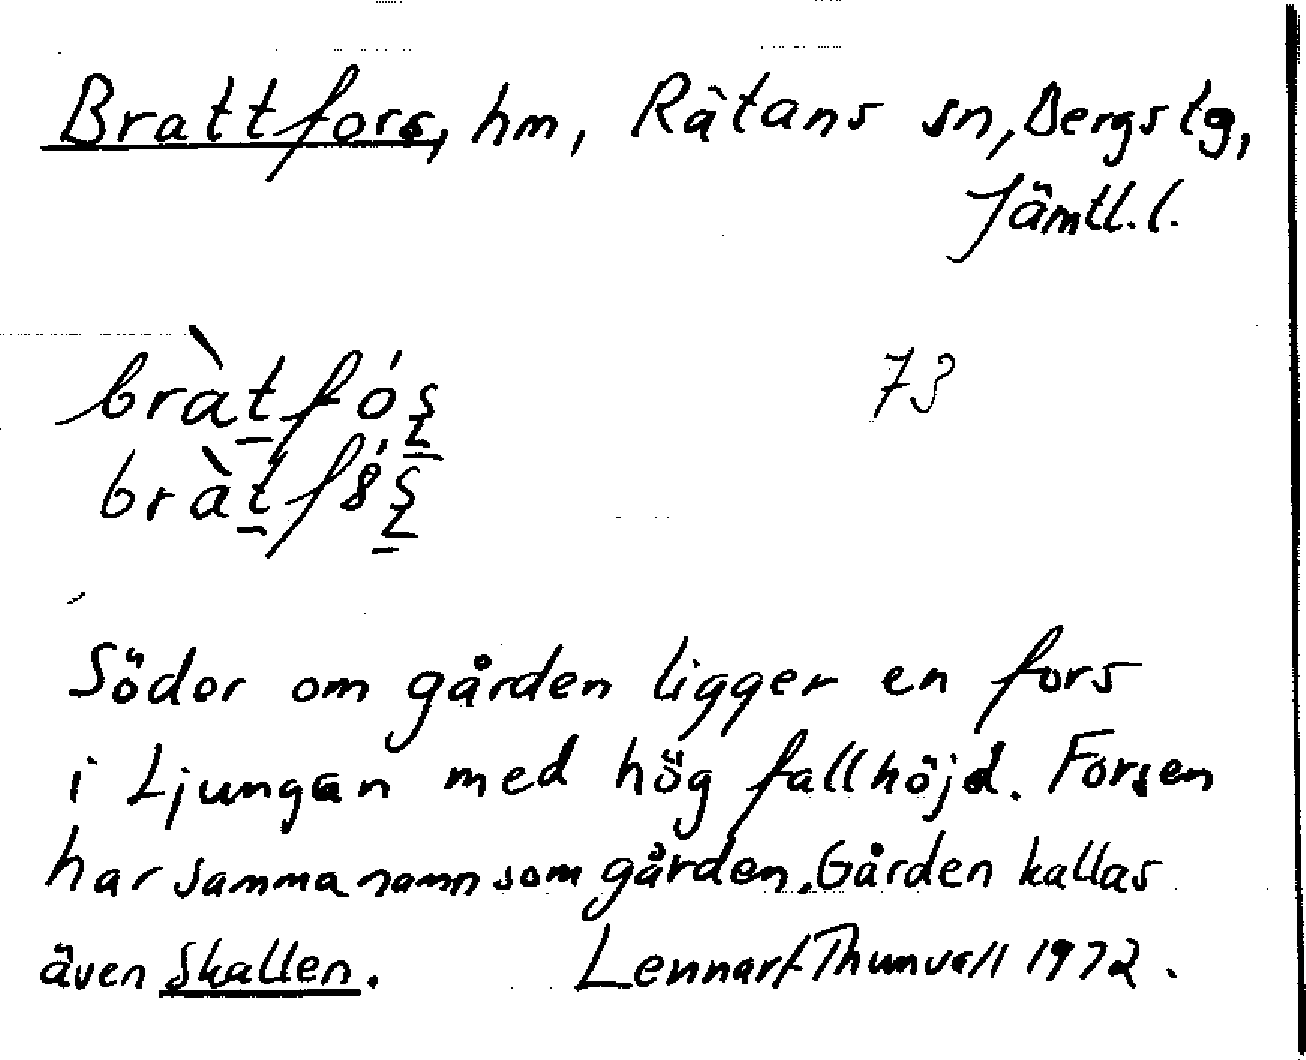 Brattfors, hm, Rätans sn, Bergs tg,
Jämtl. l.
bràtfóş 73
bràtfó̤ş
Söder om gården ligger en fors
i Ljungan med hög fallhöjd. Forsen
har samma namn som gården. Gården kallas
även Skallen. Lennart Thunvall 1972.